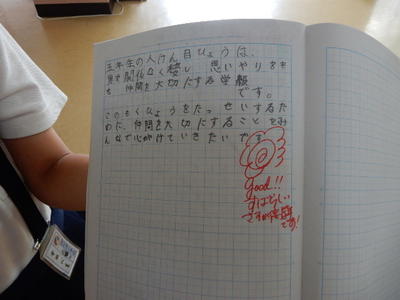 五年生の人けん目ひょうは、
男女関係なく優し 思いやりをも
ち 仲間を大切にする学級
です。
このもくひょうをたっせいするた
めに、仲間を大切にすることをみ
んなで心がけていきたいです。
good!!
すばらしい
さすが
です!